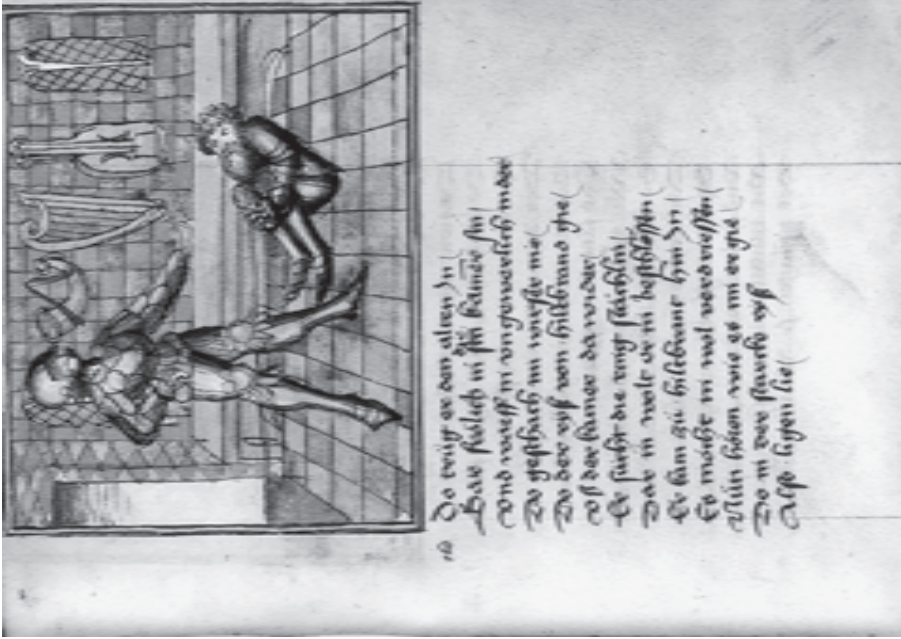 Do trůg er den alten In
Gar frölich in sin kamer hin
vnd warff in vngewerlich nider
Do geschach im nie
Do der ryß von hiltbrand gie
vß der kamer da wider
Er sůcht die ring
Dar in wolt er in beschlissen
Er kam zů hiltebrant hin In
Es möcht in wol verdriessen
Nůn hören wie es im ergie
Do in der starck ryß
Also ligen lie